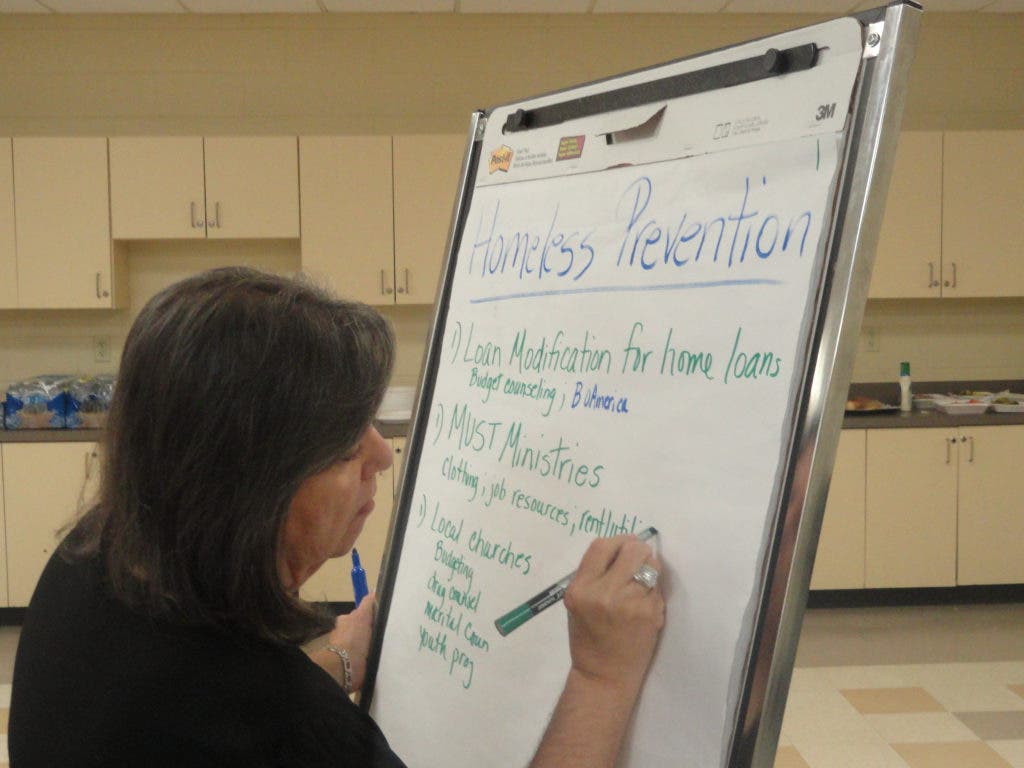 Post-it
3M
Homeless Prevention
1) Loan Modification for home loans
Budget counseling; B of America
1) MUST Ministries
clothing; job resources; rent/utili
1) Local churches
Budgeting
drug counsel
marital Coun
youth prog